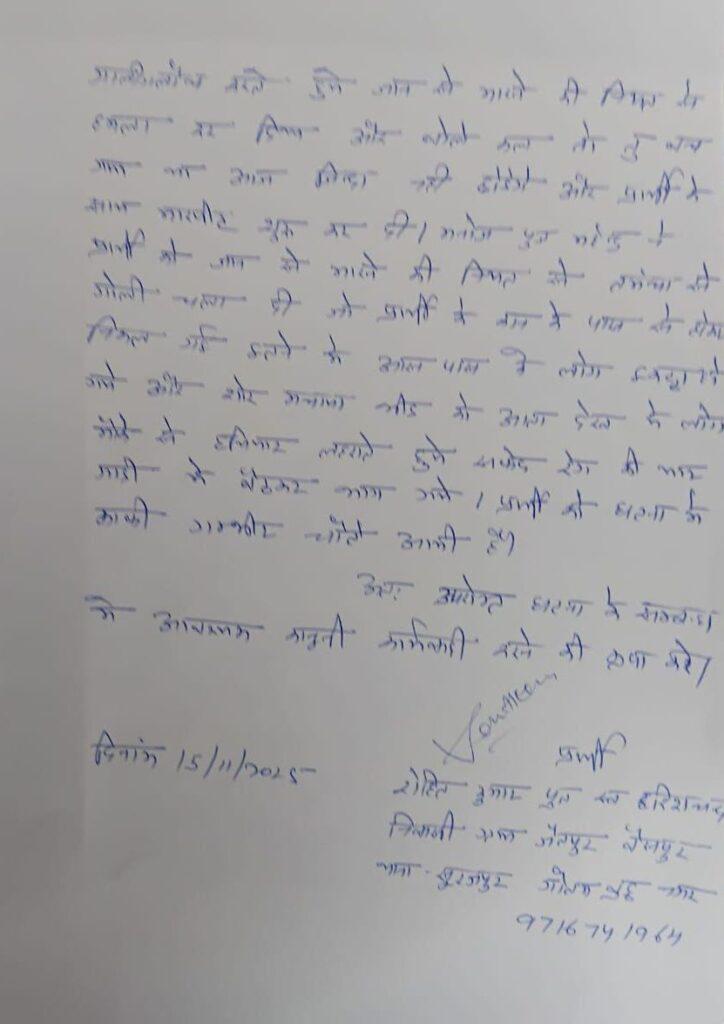 गालीगलौच करते हुये जान से मारने की नियत से
हमला कर दिया और बोले कल तो तु बच
गया था आज जिन्दा नही छोडेगे और प्रार्थी के
साथ मारपीट शुरू कर दी। मनोज पुत्र महेन्द्र ने
प्रार्थी को जान से मारने की नियत से तमंचा से
गोली चला दी जो प्रार्थी के कान के पास से होकर
निकल गई इतने मे आस पास के लोग इकट्ठा हो
गये और शोर मचाया भीड को आता देख ये लोग
मौके से हथियार लहराते हुये सफेद रंग की कार
गाडी मे बैठकर भाग गये। प्रार्थी को घटना मे
काफी गम्भीर चोटे आयी है।
अतः उपरोक्त घटना के सम्बन्ध
मे आवश्यक कानूनी कार्यवाही करने की कृपा करे।
दिनांक 15/11/2025
प्रार्थी
रोहित कुमार पुत्र स्व हरिशचन्द
निवासी ग्राम जैतपुर वैशपुर
थाना - सूरजपुर गौतम बुद्ध नगर
9716741964